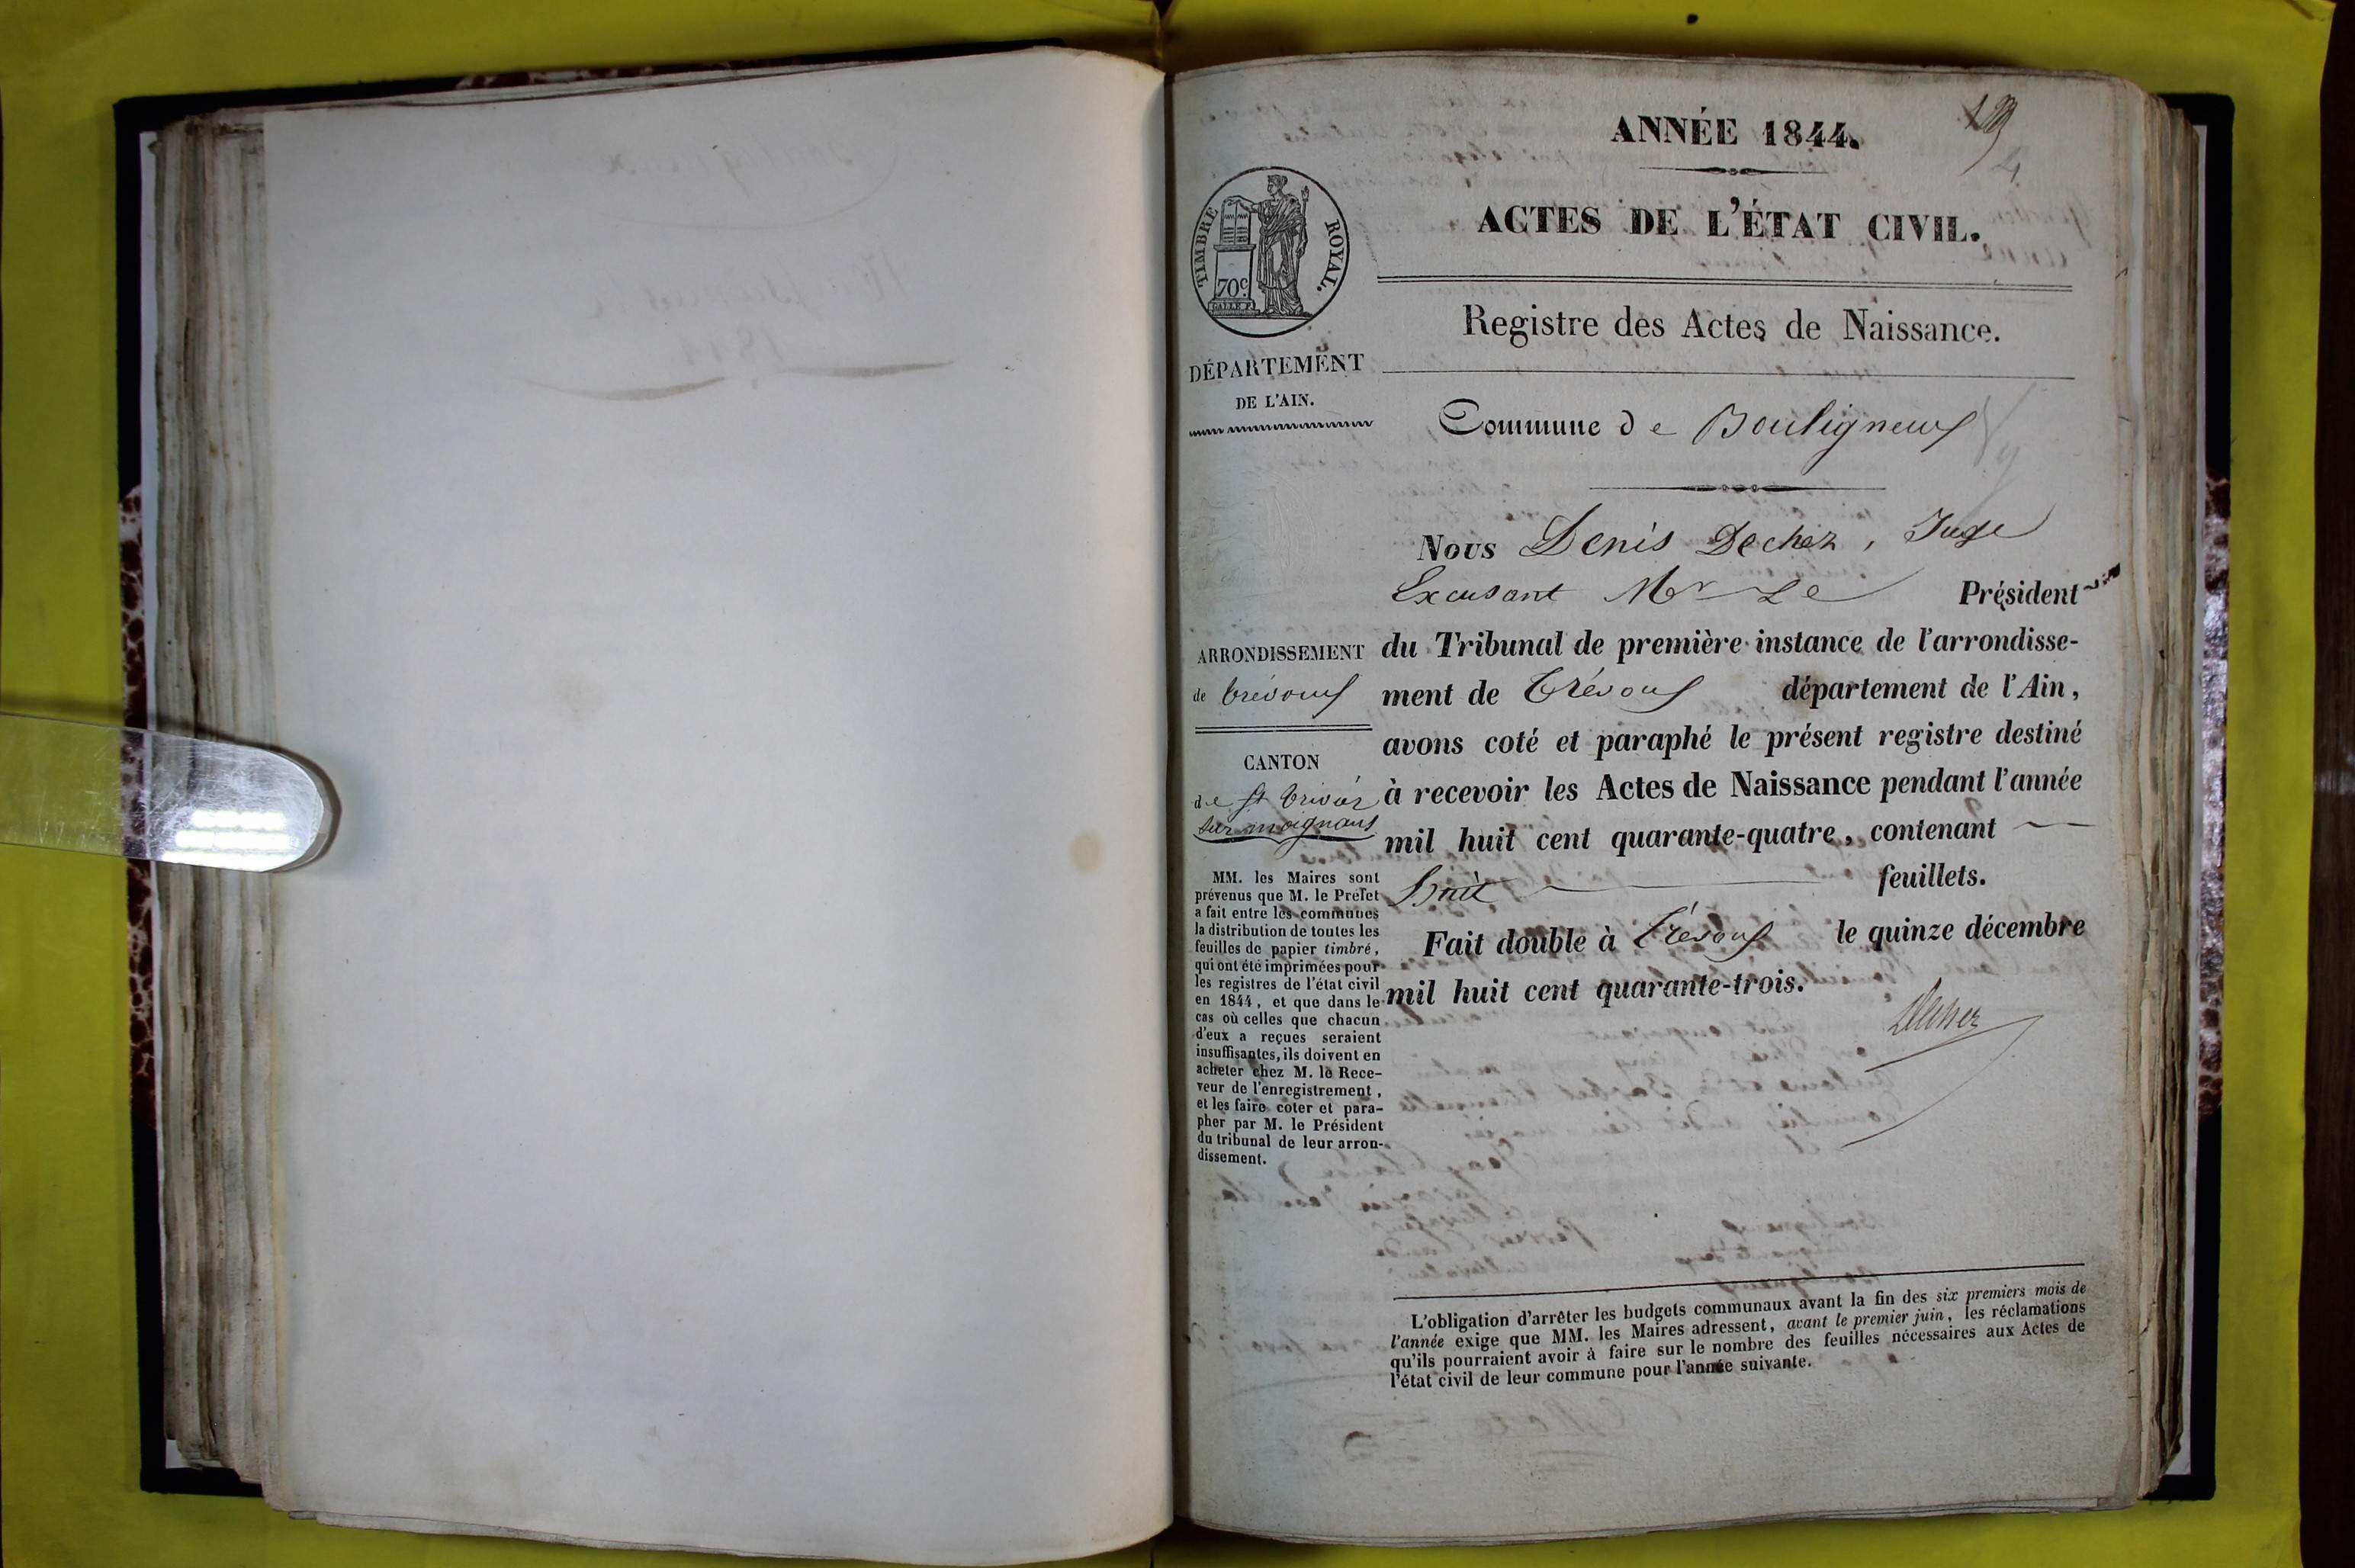 ANNÉE 1844.
ACTES DE L'ÉTAT CIVIL.
TIMBRE ROYAL.
70c
GALLE F.
Registre des Actes de Naissance.
DÉPARTEMENT
DE L'AIN.
Commune de Bouligneux
Nous Denis Dechez, Juge
Excusant Mr Le Président
ARRONDISSEMENT
de Trévoux
CANTON
de St Trivier
sur moignans
du Tribunal de première instance de l'arrondisse-
ment de Trévoux département de l'Ain,
avons coté et paraphé le présent registre destiné
à recevoir les Actes de Naissance pendant l'année
mil huit cent quarante-quatre, contenant
huit feuillets.
Fait double à Trévoux le quinze décembre
mil huit cent quarante-trois.
Dechez
MM. les Maires sont
prévenus que M. le Préfet
a fait entre les communes
la distribution de toutes les
feuilles de papier timbré,
qui ont été imprimées pour
les registres de l'état civil
en 1844, et que dans le
cas où celles que chacun
d'eux a reçues seraient
insuffisantes, ils doivent en
acheter chez M. le Rece-
veur de l'enregistrement,
et les faire coter et para-
pher par M. le Président
du tribunal de leur arron-
dissement.
L'obligation d'arrêter les budgets communaux avant la fin des six premiers mois de
l'année exige que MM. les Maires adressent, avant le premier juin, les réclamations
qu'ils pourraient avoir à faire sur le nombre des feuilles nécessaires aux Actes de
l'état civil de leur commune pour l'année suivante.